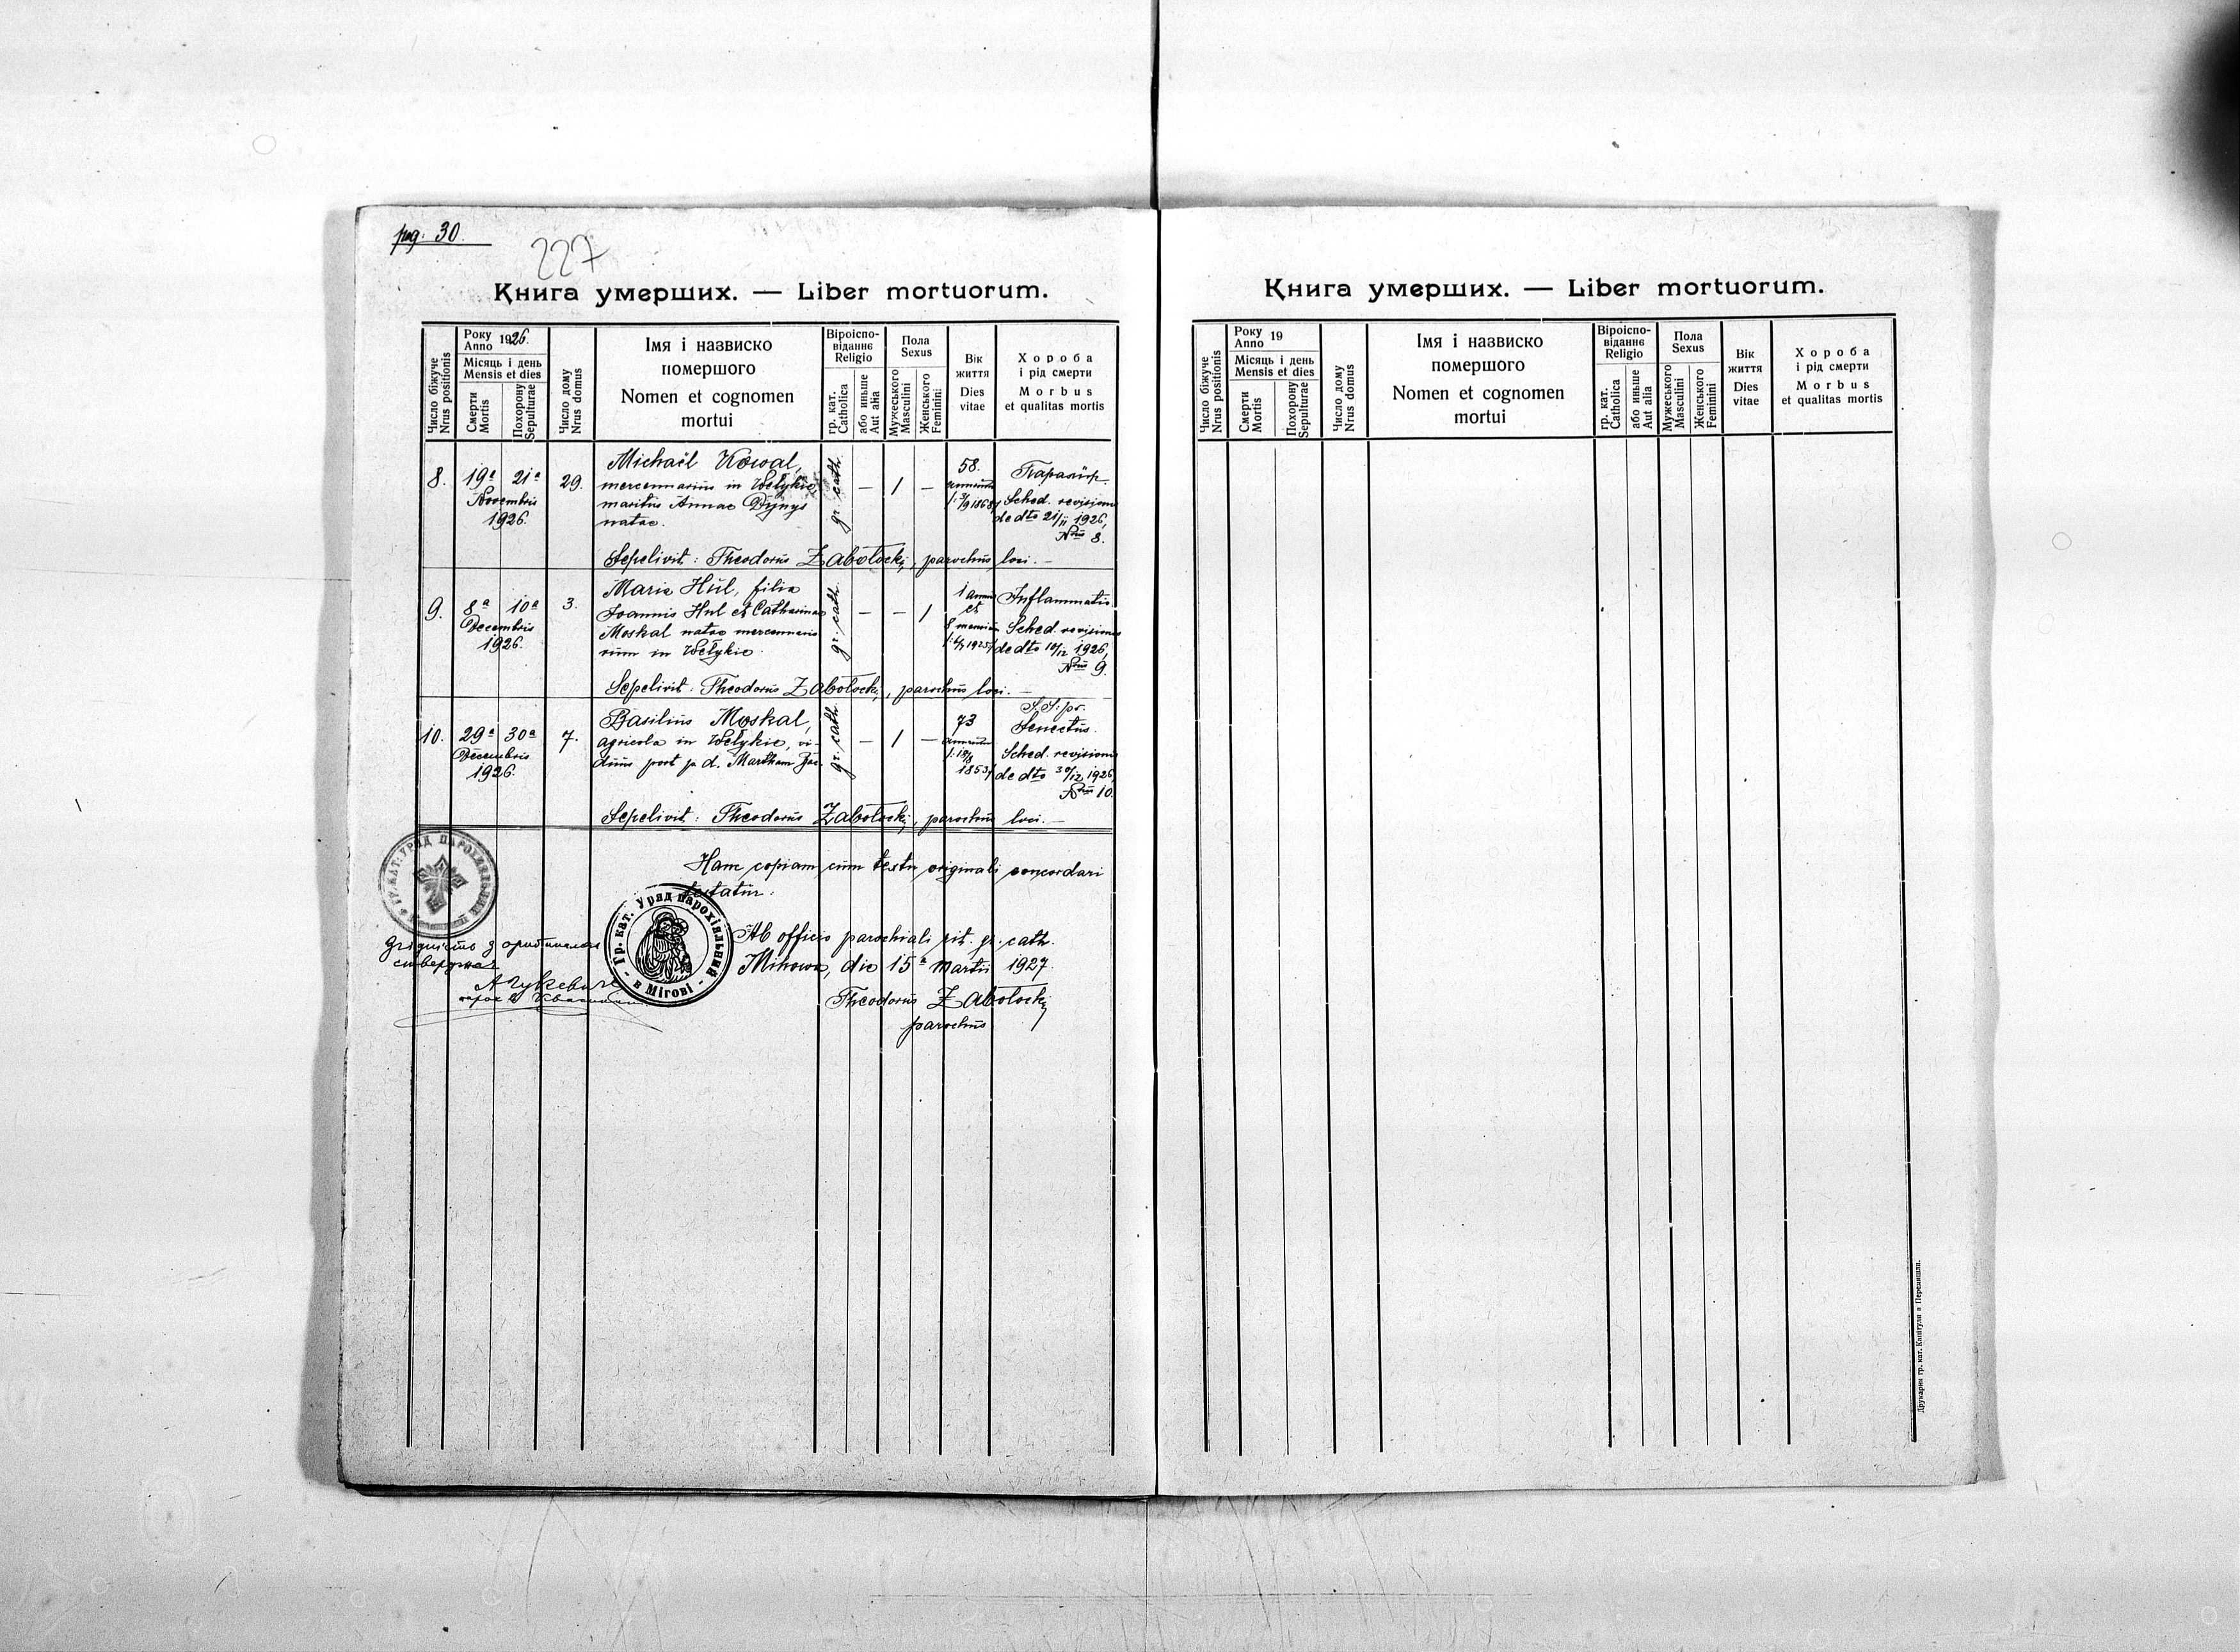 pag. 30.
227
Книга умерших. — Liber mortuorum.
Число біжуче
Nrus positionis
Року
Anno 1926.
Місяць і день
Mensis et dies
Смерти
Mortis
Похорону
Sepulturae
Число дому
Nrus domus
Імя і назвиско
помершого
Nomen et cognomen
mortui
Віроіспо-
віданнє
Religio
гр. кат.
Catholica
або иньше
Aut alia
Пола
Sexus
Мужеського
Masculini
Женського
Feminini
Вік
життя
Dies
vitae
Хороба
і рід смерти
Morbus
et qualitas mortis
8.
19ª 21ª
Novembris
1926.
29.
Michaël Kowal,
mercennarius in Wełykie,
maritus Annae Dynys
natae.
gr. cath.
— 1 —
58.
annorum
3/9 1868
Параліж.
Sched. revisionis
de dto 21/11 1926,
Nrus 8.
Sepelivit: Theodorus Zabołockij, parochus loci. —
9.
8ª 10ª
Decembris
1926.
3.
Maria Hul, filia
Joannis Hul et Catharinae
Moskal natae mercennario
rum in Wełykie.
gr. cath.
— — 1
1 anni
et
8 mensium
1925
Inflammatio
Sched. revisionis
de dto 10/12 1926,
Nrus 9.
Sepelivit: Theodorus Zabołockij, parochus loci. —
10.
29ª 30ª
Decembris
1926.
7.
Basilius Moskal,
agricola in Wełykie, vi-
duus post p. d. Martham
gr. cath.
— 1 —
73
annorum
1853
S.S. pr.
Senectus.
Sched. revisionis
de dto 30/12 1926,
Nrus 10.
Sepelivit: Theodorus Zabołockij, parochus loci. —
Hanc copiam cum textu originali concordari
testatur.
Ab officio parochiali rit. gr. cath.
Mihowa, die 15ª Martii 1927.
Theodorus Zabołockij
parochus
ГР. КАТ. УРЯД ПАРОХІЯЛЬНИЙ
Гр. кат. Уряд парохіяльний
в Мігові
Згідність з оригіналом
стверджає
парох
Книга умерших. — Liber mortuorum.
Число біжуче
Nrus positionis
Року
Anno 19
Місяць і день
Mensis et dies
Смерти
Mortis
Похорону
Sepulturae
Число дому
Nrus domus
Імя і назвиско
помершого
Nomen et cognomen
mortui
Віроіспо-
віданнє
Religio
гр. кат.
Catholica
або иньше
Aut alia
Пола
Sexus
Мужеського
Masculini
Женського
Feminini
Вік
життя
Dies
vitae
Хороба
і рід смерти
Morbus
et qualitas mortis
Друкарня гр. кат. Капітули в Перемишли.